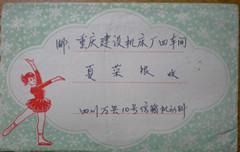 邮：重庆建设机床厂四车间
夏荣根 收
四川万县10号信箱